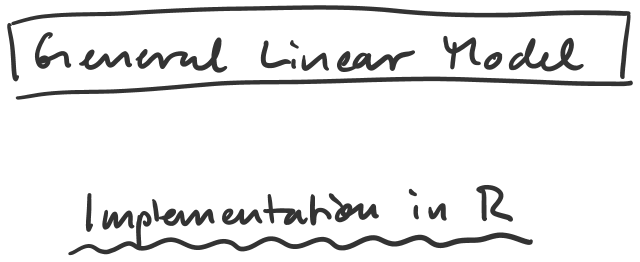 General Linear Model
Implementation in R